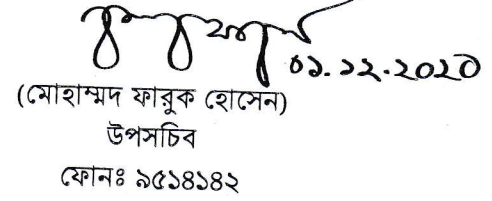 ০১.১২.২০২০
(মোহাম্মদ ফারুক হোসেন)
উপসচিব
ফোনঃ ৯৫১৪১৪২